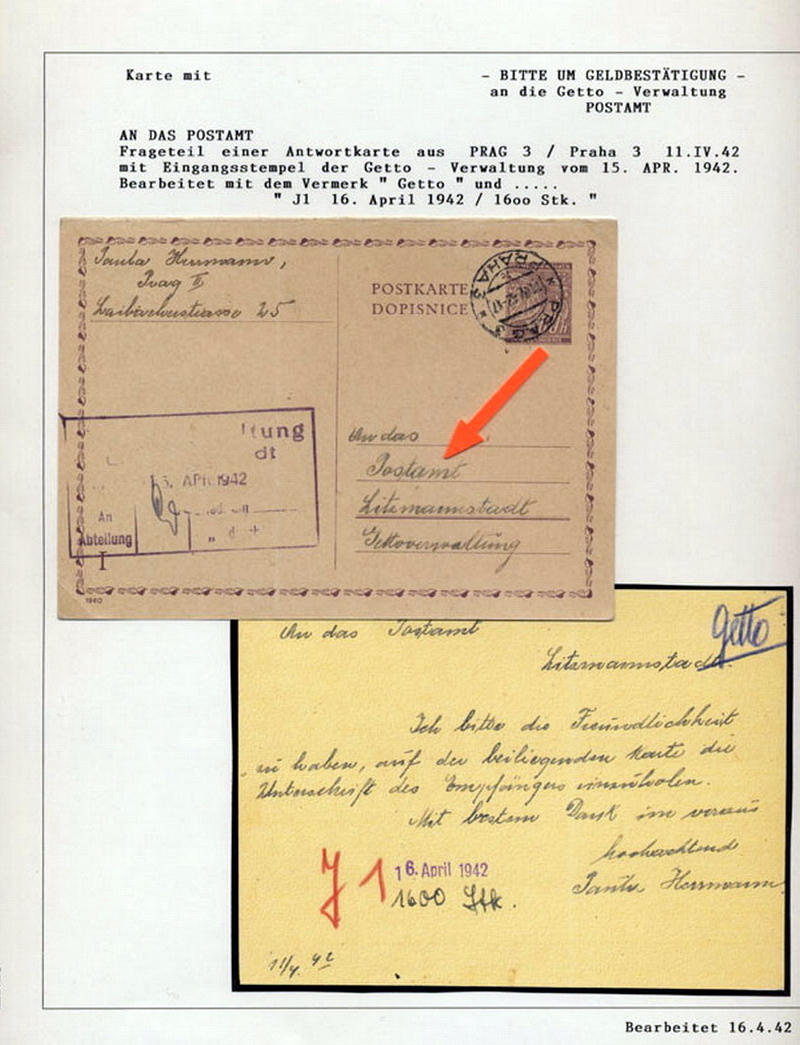 Karte mit
- BITTE UM GELDBESTÄTIGUNG -
an die Getto - Verwaltung
POSTAMT
AN DAS POSTAMT
Frageteil einer Antwortkarte aus PRAG 3 / Praha 3 11.IV.42
mit Eingangsstempel der Getto - Verwaltung vom 15. APR. 1942.
Bearbeitet mit dem Vermerk " Getto " und .....
" J1 16. April 1942 / 16oo Stk. "
Herrmann,
Prag II
25
POSTKARTE
DOPISNICE
PRAHA 3
PRAG 3
An das
Postamt
Litzmannstadt
Gettoverwaltung
ltung
dt
APR. 1942
An
Abteilung
I
1940
An das Postamt
Getto
Litzmannstadt.
Ich bitte die Freundlichkeit
zu haben, auf der beiliegenden Karte die
Unterschrift des Empfängers einzuholen.
Mit bestem Dank im voraus
hochachtend
Herrmann
J 1
16. April 1942
1600 Stk.
11/4. 42
Bearbeitet 16.4.42